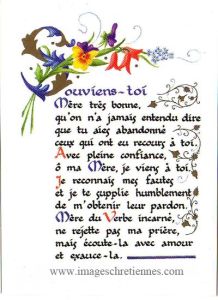 Souviens-toi
Mère très bonne,
qu'on n'a jamais entendu dire
que tu aies abandonné
ceux qui ont eu recours à toi.
Avec pleine confiance,
ô ma Mère, je viens à toi.
Je reconnais mes fautes
et je te supplie humblement
de m'obtenir leur pardon.
Mère du Verbe incarné,
ne rejette pas ma prière,
mais écoute-la avec amour
et exauce-la.
www.imageschretiennes.com